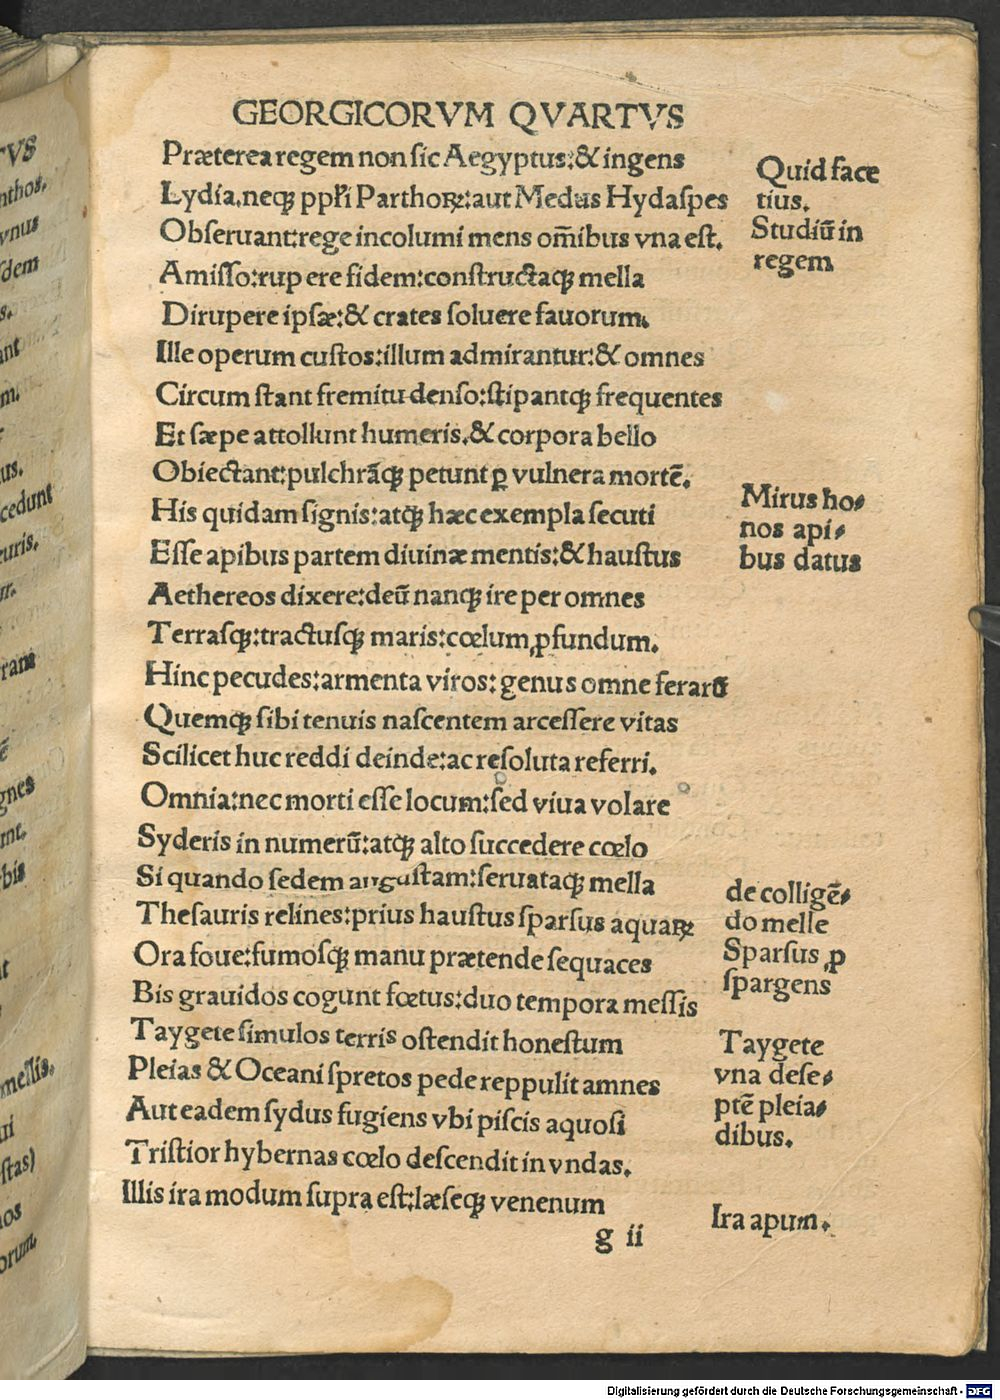 GEORGICORVM QVARTVS
Præterea regem non sic Aegyptus:& ingens
Lydia.neqꝫ pp̄ľi Parthoꝝ:aut Medus Hydaſpes
Obſeruant:rege incolumi mens om̄ibus vna eſt.
Amiſſo:rupere fidem:conſtructaqꝫ mella
Dirupere ipſæ:& crates ſoluere fauorum.
Ille operum cuſtos:illum admirantur:& omnes
Circum ſtant fremitu denſo:ſtipantqꝫ frequentes
Et ſæpe attollunt humeris.& corpora bello
Obiectant:pulchrāqꝫ petunt ꝑ vulnera mortē.
His quidam ſignis:atqꝫ hæc exempla ſecuti
Eſſe apibus partem diuinæ mentis:& hauſtus
Aethereos dixere:deū nanqꝫ ire per omnes
Terraſqꝫ:tractuſqꝫ maris:cœlum ꝓfundum.
Hinc pecudes:armenta viros:genus omne ferarū
Quemqꝫ ſibi tenuis naſcentem arceſſere vitas
Scilicet huc reddi deinde:ac reſoluta referri.
Omnia:nec morti eſſe locum:ſed viua volare
Syderis in numerū:atqꝫ alto ſuccedere cœlo
Si quando ſedem anguſtam:ſeruataqꝫ mella
Theſauris relines:prius hauſtus ſparſus aquaꝝ
Ora foue:fumoſqꝫ manu prætende ſequaces
Bis grauidos cogunt fœtus:duo tempora meſſis
Taygete ſimul os terris oſtendit honeſtum
Pleias & Oceani ſpretos pede reppulit amnes
Aut eadem ſydus fugiens vbi piſcis aquoſi
Triſtior hybernas cœlo deſcendit in vndas.
Illis ira modum ſupra eſt:læſeqꝫ venenum
g ii
Quid face
tius.
Studiū in
regem
Mirus ho-
nos api-
bus datus
de colligē-
do melle
Sparſus ꝓ
ſpargens
Taygete
vna deſe-
ptē pleia-
dibus.
Ira apum.
Digitalisierung gefördert durch die Deutsche Forschungsgemeinschaft - DFG